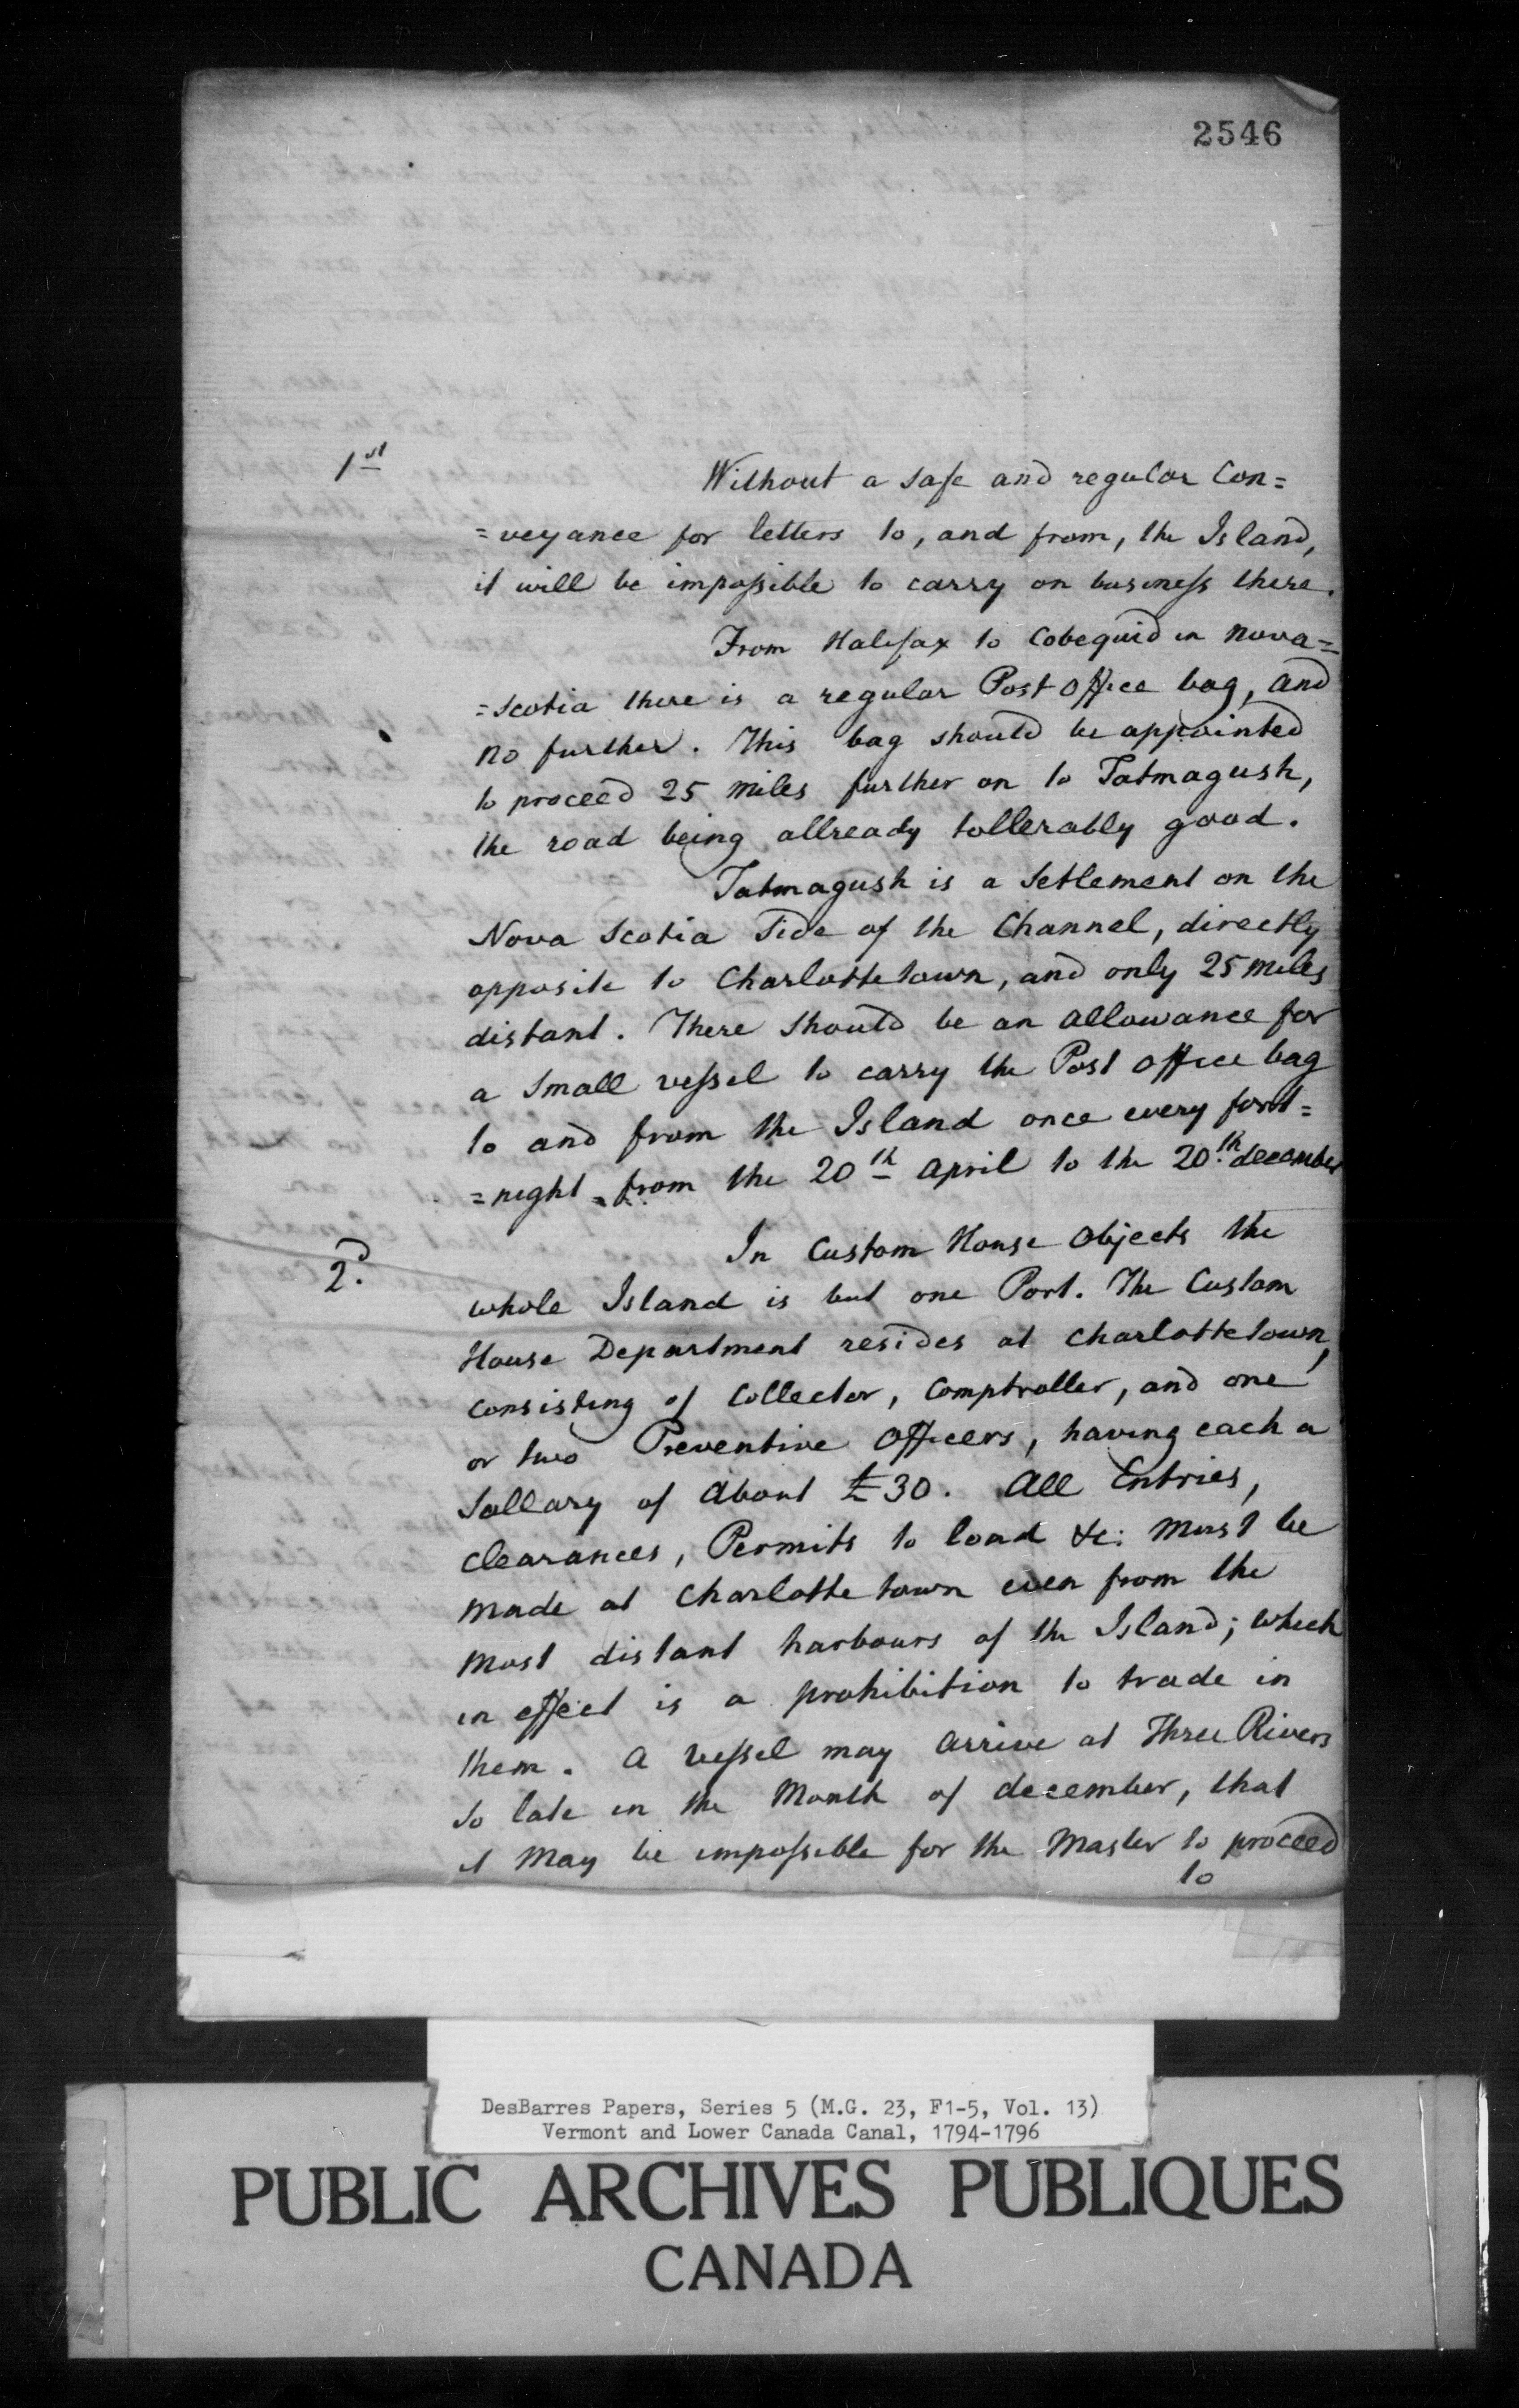 2546
1st
Without a safe and regular Con=
=veyance for letters to, and from, the Island,
it will be impossible to carry on business there.
From Halifax to Cobequid in Nova=
=Scotia there is a regular Post office bag, and
no further. This bag should be appointed
to proceed 25 miles further on to Tatmagush,
the road being allready tollerably good.
Tatmagush is a Setlement on the
Nova Scotia Side of the Channel, directly
opposite to Charlottetown, and only 25 miles
distant. There should be an allowance for
a Small vessel to carry the Post office bag
to and from the Island once every fort=
=night from the 20th April to the 20th december
2d.
In Custom House Objects the
whole Island is but one Port. The Custom
House Department resides at Charlottetown,
consisting of Collector, Comptroller, and one
or two Preventive Officers, having each a
Sallary of about £30. All Entries,
Clearances, Permits to load &c: must be
made at Charlotte town even from the
most distant harbours of the Island; which
in effect is a prohibition to trade in
them. A vessel may arrive at Three Rivers
so late in the Month of december, that
it may be impossible for the Master to proceed
to
DesBarres Papers, Series 5 (M.G. 23, F1-5, Vol. 13)
Vermont and Lower Canada Canal, 1794-1796
PUBLIC ARCHIVES PUBLIQUES
CANADA